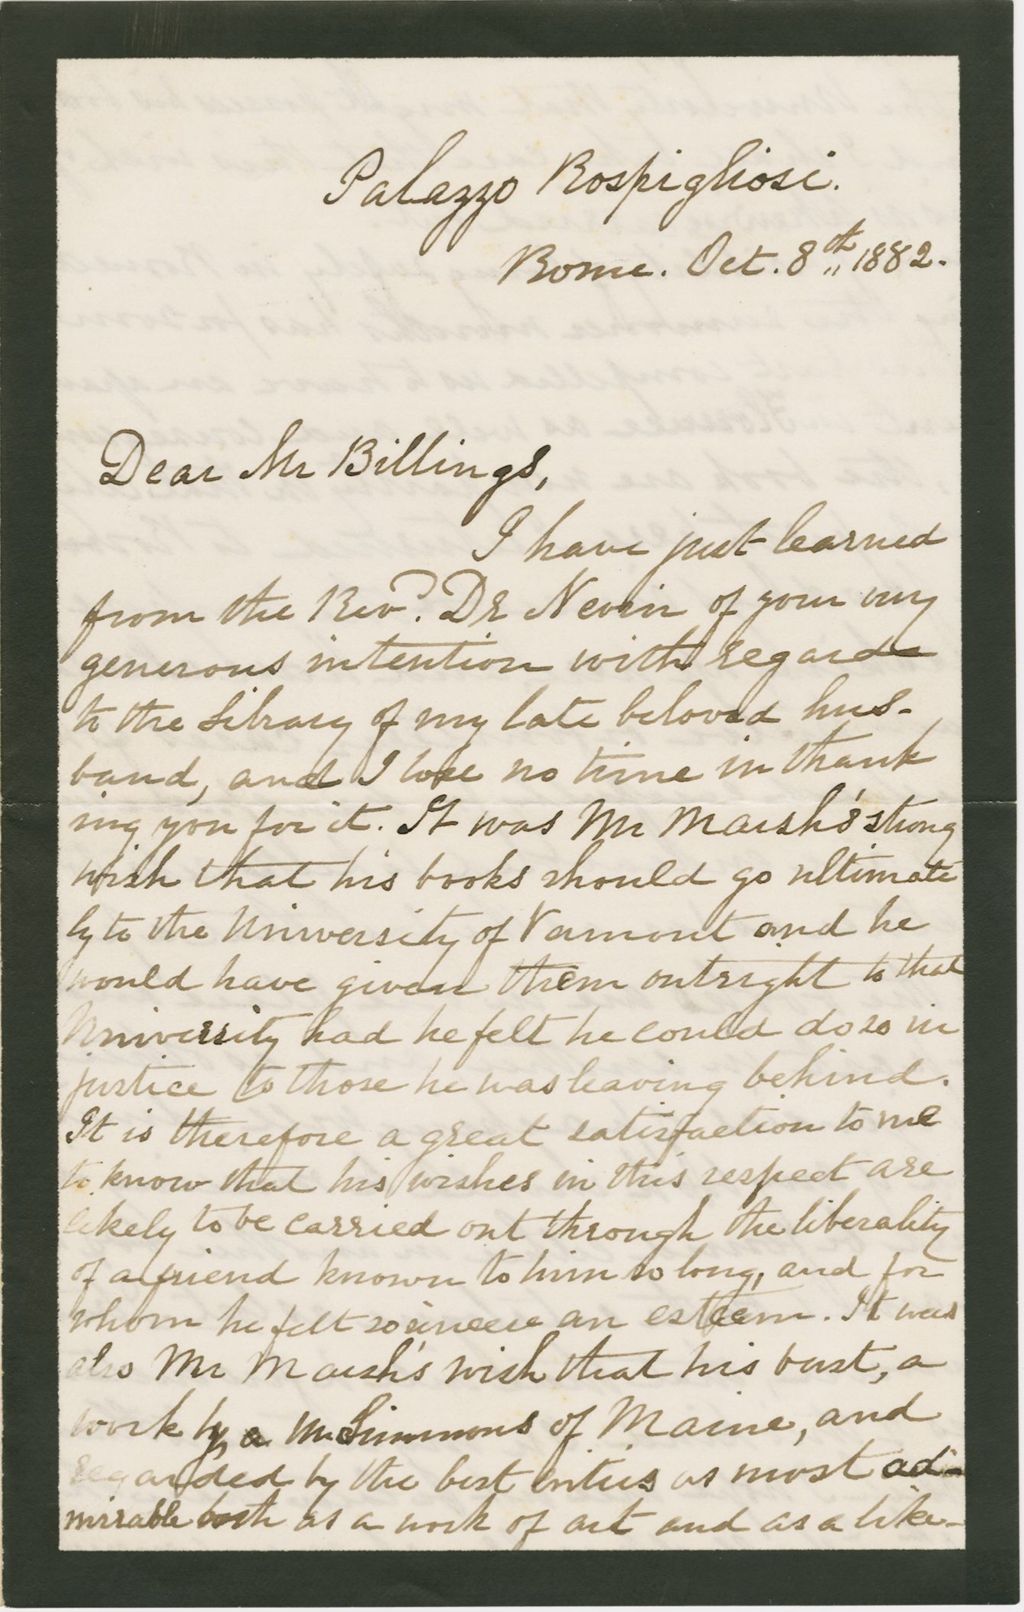 Palazzo Rospigliosi.
Rome. Oct. 8th 1882.
Dear Mr Billings,
I have just learned
from the Revd. Dr Nevin of your very
generous intention with regard
to the Library of my late beloved hus-
band, and I lose no time in thank
ing you for it. It was Mr Marsh's strong
wish that his books should go ultimate
ly to the University of Vermont and he
would have given them outright to that
University had he felt he could do so in
justice to those he was leaving behind.
It is therefore a great satisfaction to me
to know that his wishes in this respect are
likely to be carried out through the liberality
of a friend known to him so long, and for
whom he felt so sincere an esteem. It was
also Mr Marsh's wish that his bust, a
work by a Mr Simmons of Maine, and
regarded by the best critics as most ad-
mirable both as a work of art and as a like-